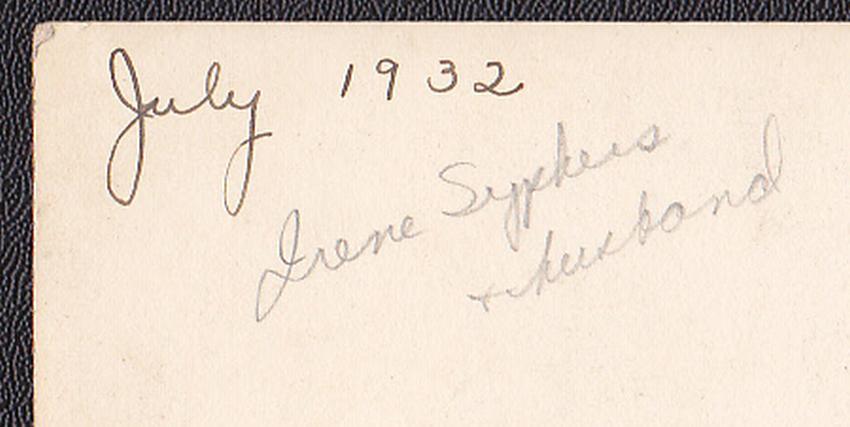 July 1932
Irene Syphers
+ husband